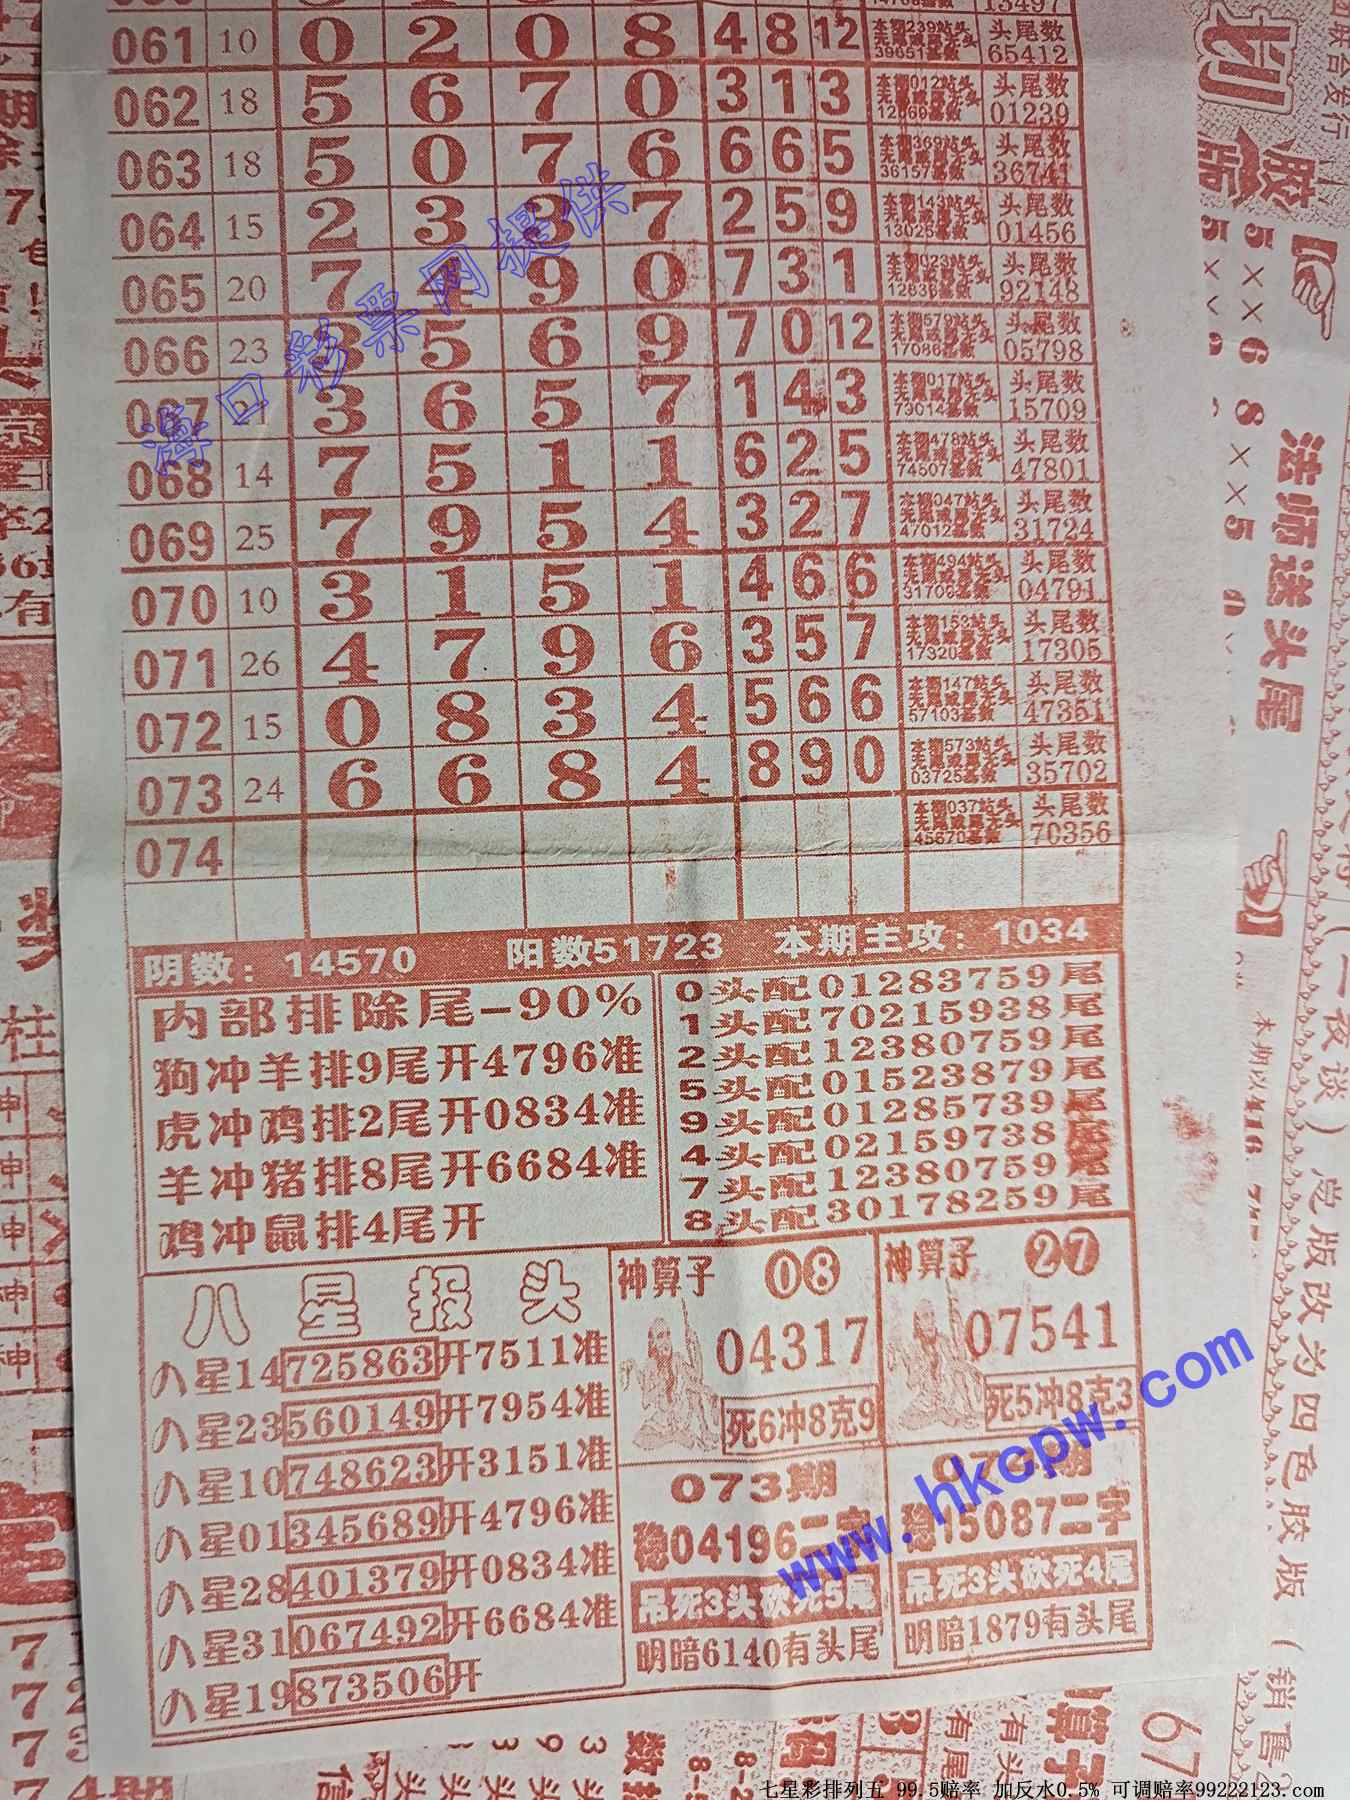 061 10 0 2 0 8 4 8 12 本期239站头 无尾或尾无头 39651基数 头尾数 65412
062 18 5 6 7 0 3 1 3 本期012站头 无尾或尾无头 12869基数 头尾数 01239
063 18 5 0 7 6 6 6 5 本期369站头 无尾或尾无头 36157基数 头尾数 36741
064 15 2 3 3 7 2 5 9 本期143站头 无尾或尾无头 13025基数 头尾数 01456
065 20 7 4 9 0 7 3 1 本期023站头 无尾或尾无头 12836基数 头尾数 92148
066 23 3 5 6 9 7 0 12 本期579站头 无尾或尾无头 17086基数 头尾数 05798
067 21 3 6 5 7 1 4 3 本期017站头 无尾或尾无头 73014基数 头尾数 15709
068 14 7 5 1 1 6 2 5 本期478站头 无尾或尾无头 74507基数 头尾数 47801
069 25 7 9 5 4 3 2 7 本期047站头 无尾或尾无头 47012基数 头尾数 31724
070 10 3 1 5 1 4 6 6 本期494站头 无尾或尾无头 31706基数 头尾数 04791
071 26 4 7 9 6 3 5 7 本期153站头 无尾或尾无头 17320基数 头尾数 17305
072 15 0 8 3 4 5 6 6 本期147站头 无尾或尾无头 57103基数 头尾数 47351
073 24 6 6 8 4 8 9 0 本期573站头 无尾或尾无头 03725基数 头尾数 35702
074 本期037站头 无尾或尾无头 45670基数 头尾数 70356
海口彩票网提供
阴数：14570 阳数51723 本期主攻：1034
内部排除尾-90%
狗冲羊排9尾开4796准
虎冲鸡排2尾开0834准
羊冲猪排8尾开6684准
鸡冲鼠排4尾开
0头配01283759尾
1头配70215938尾
2头配12380759尾
5头配01523879尾
9头配01285739尾
4头配02159738尾
7头配12380759尾
8头配30178259尾
八星报头
八星14725863开7511准
八星23560149开7954准
八星10748623开3151准
八星01345689开4796准
八星28401379开0834准
八星31067492开6684准
八星19873506开
神算子 08
04317
死6冲8克9
神算子 27
07541
死5冲8克3
073期
稳04196二字
吊死3头砍死5尾
明暗6140有头尾
074期
稳15087二字
吊死3头砍死4尾
明暗1879有头尾
www.hkcpw.com
法师送头尾
总版改为四色胶版
七星彩排列五 99.5赔率 加反水0.5% 可调赔率99222123.com